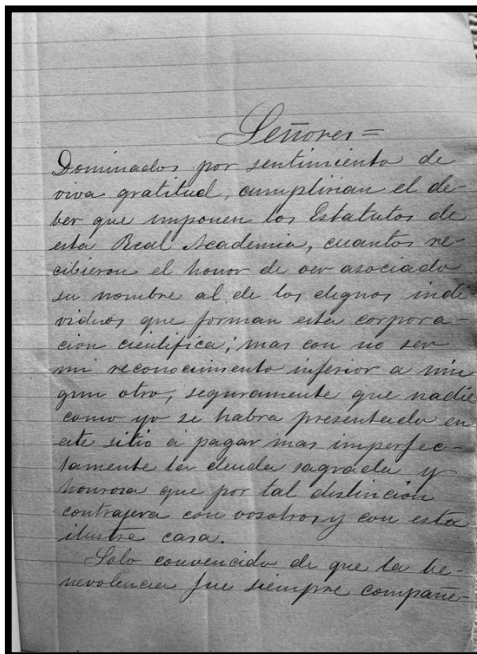 Señores=
Dominados por sentimiento de
viva gratitud, cumplirian el de-
ber que imponen los Estatutos de
esta Real Academia, cuantos re-
cibieron el honor de ver asociado
su nombre al de los dignos indi
viduos que forman esta corpora-
cion cientifica; mas con no ser
mi reconocimiento inferior a nin
gun otro, seguramente que nadie
como yo se habra presentado en
este sitio a pagar mas imperfec-
tamente la deuda sagrada y
honrosa que por tal distincion
contrajera con vosotros y con esta
ilustre casa.
Solo convencido de que la be-
nevolencia fue siempre compañe-